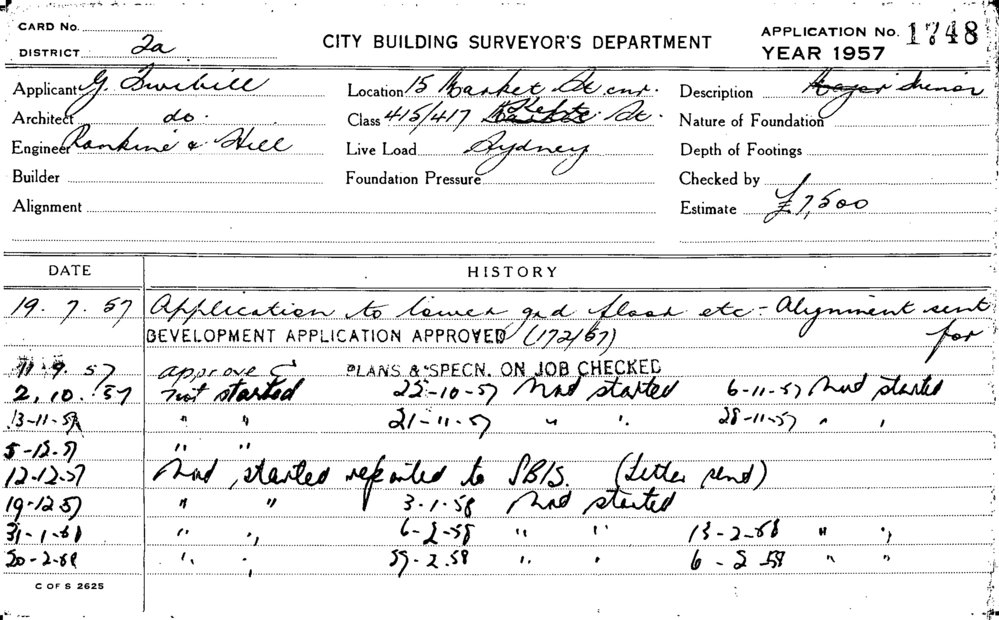 CARD No.
DISTRICT 2a
CITY BUILDING SURVEYOR'S DEPARTMENT
APPLICATION No. 1748
YEAR 1957
Applicant G. Twibill
Location 15 Market St cnr.
Description Major Minor
Architect do.
Class 415/417 Kent St.
Nature of Foundation
Engineer Rankine & Hill
Live Load Sydney
Depth of Footings
Builder
Foundation Pressure
Checked by
Alignment
Estimate £7,500
DATE HISTORY
19. 7. 57 Application to lower grd floor etc - Alignment sent
DEVELOPMENT APPLICATION APPROVED (172/57) for
11 9. 57 approved PLANS & SPECN. ON JOB CHECKED
2. 10. 57 not started 22-10-57 Not started 6-11-57 Not started
13-11-57 " " 21-11-57 " " 28-11-57 " "
5-12-57 " "
12-12-57 Not started reported to SBIS. (Letter send)
19-12-57 " " 3-1-58 Not started
31-1-58 " " 6-2-58 " " 13-2-58 " "
20-2-58 " " 2.58 " " 6-2-58 " "
C OF S 2625